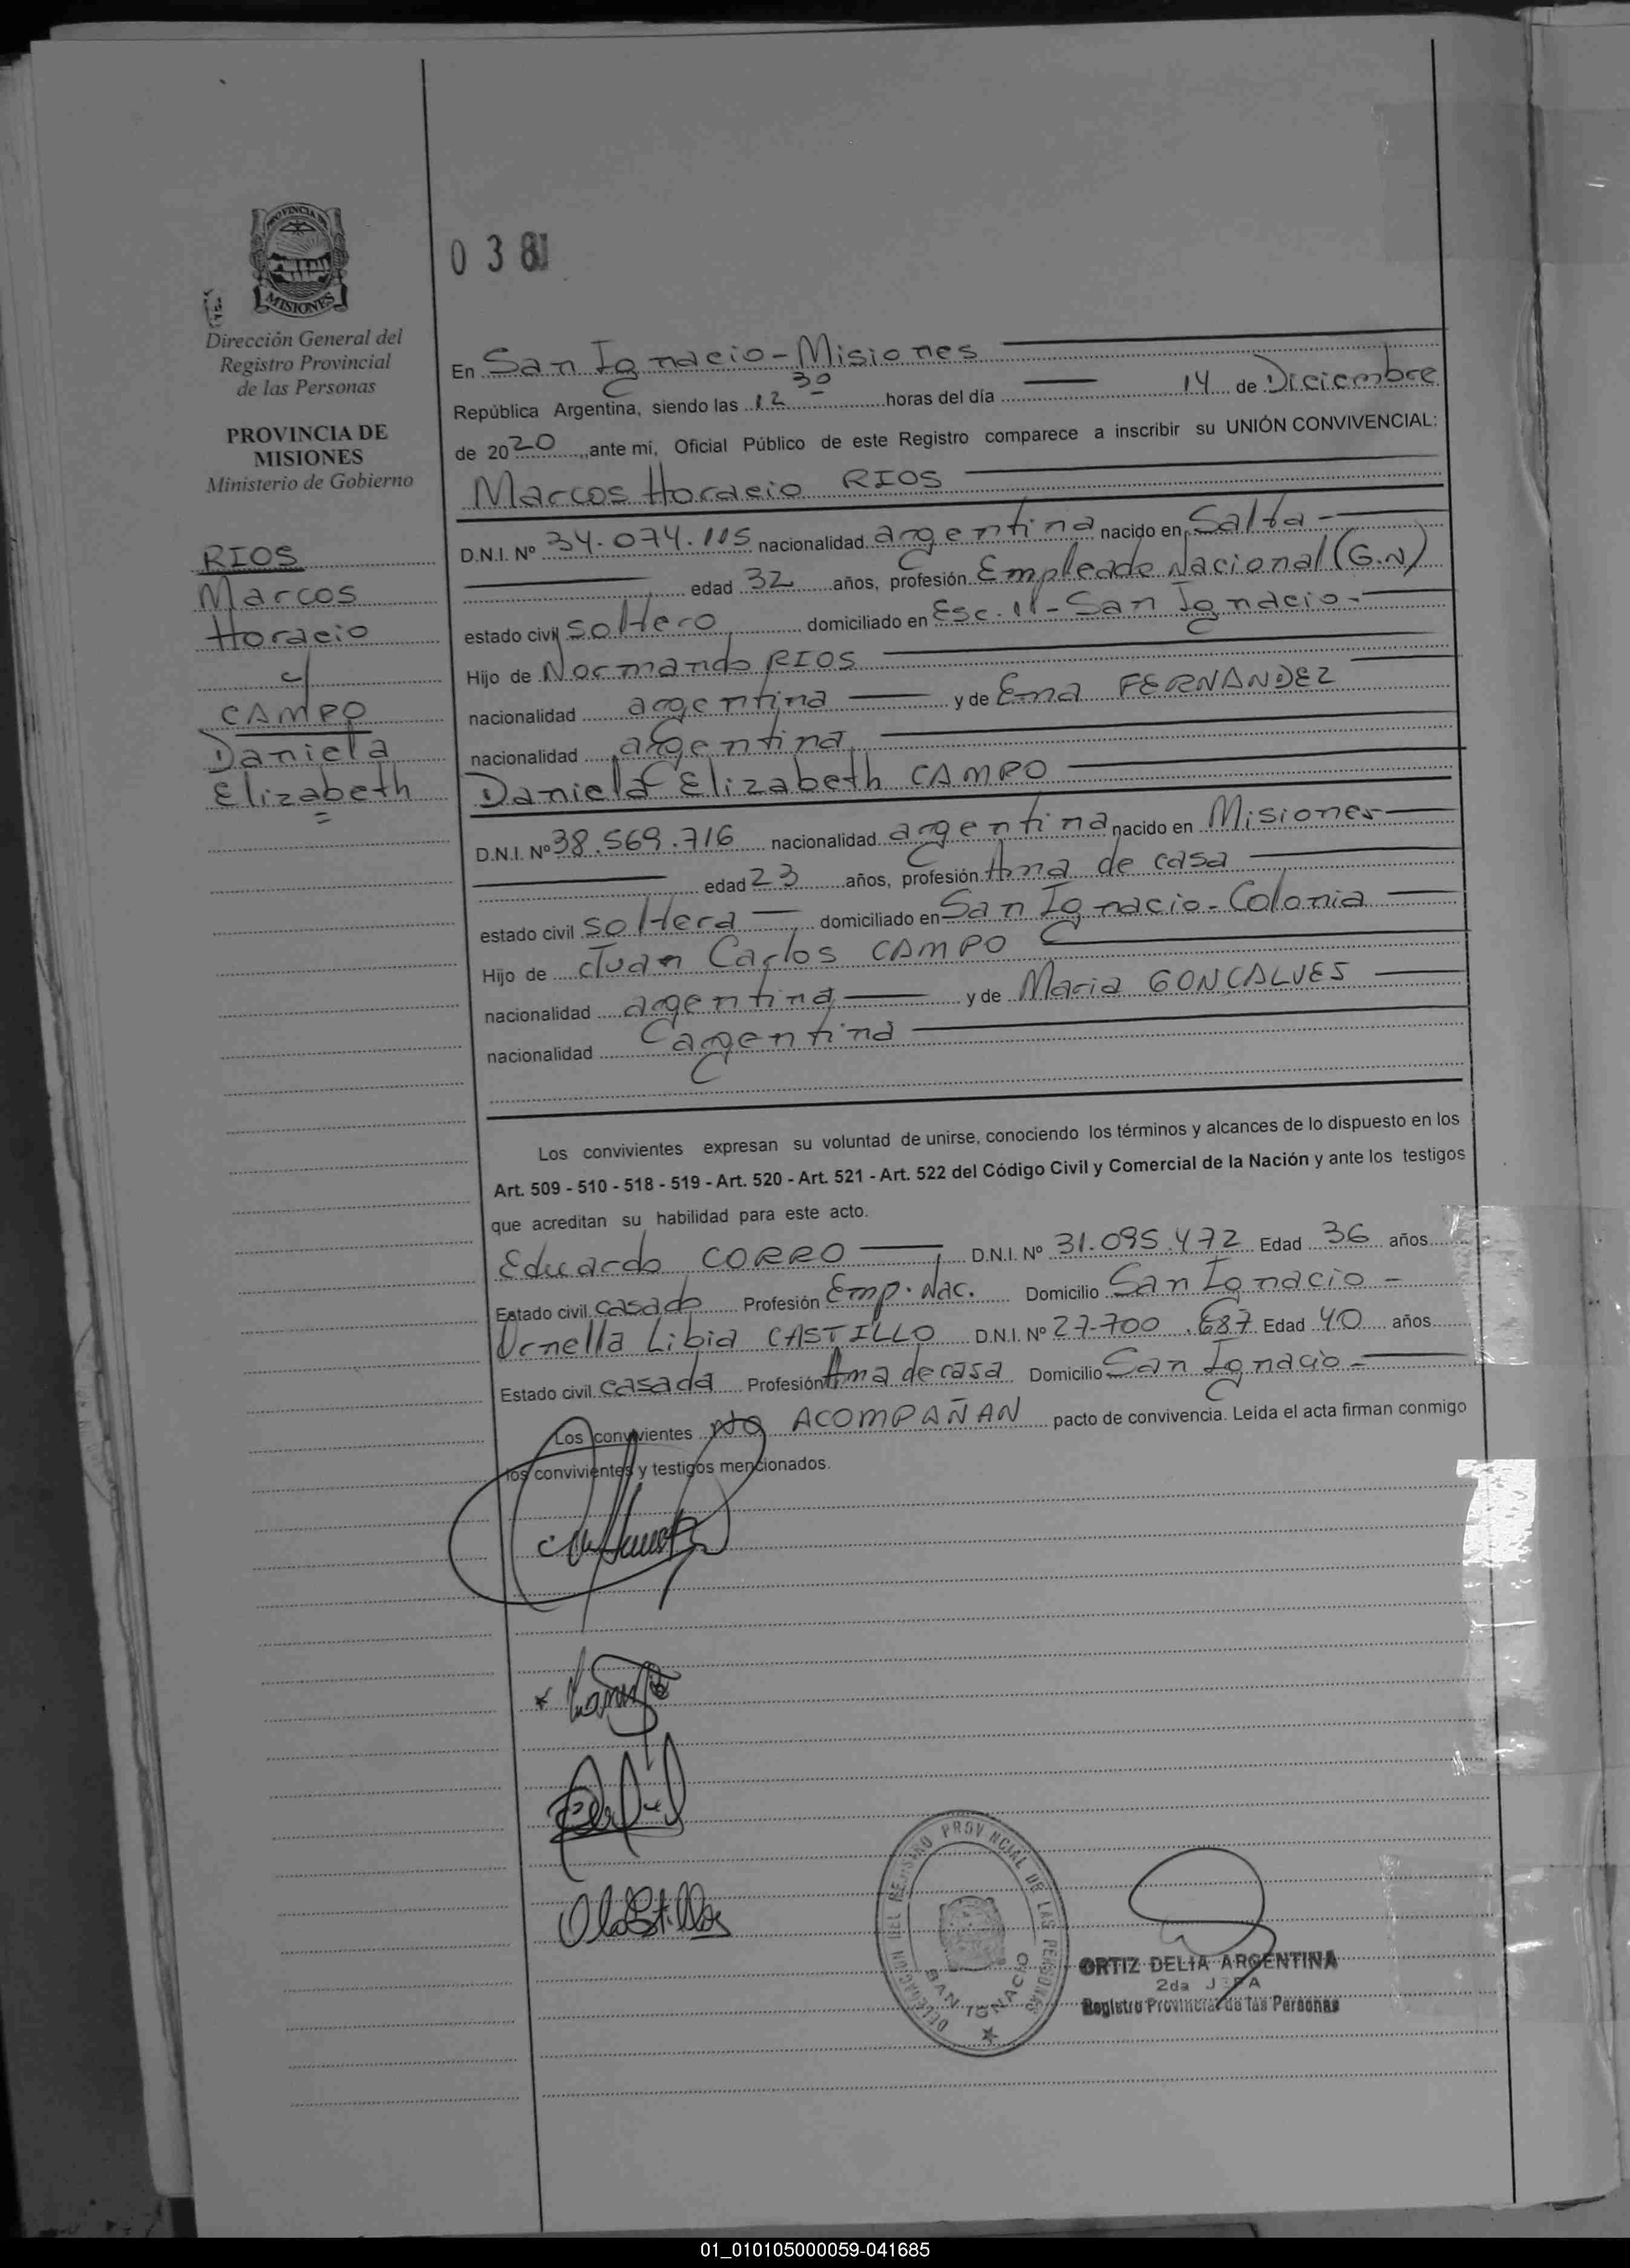 PROVINCIA DE
MISIONES
Dirección General del
Registro Provincial
de las Personas
PROVINCIA DE
MISIONES
Ministerio de Gobierno
RIOS
Marcos
Horacio
c/
CAMPO
Daniela
Elizabeth
038
En San Ignacio-Misiones
República Argentina, siendo las 12 30 horas del día 14 de Diciembre
de 2020, ante mí, Oficial Público de este Registro comparece a inscribir su UNIÓN CONVIVENCIAL:
Marcos Horacio RIOS
D.N.I. Nº 34.074.115 nacionalidad argentina nacido en Salta -
edad 32 años, profesión Empleado Nacional (G.N)
estado civil soltero domiciliado en Esc. 11 - San Ignacio-
Hijo de Normando RIOS
nacionalidad argentina y de Ema FERNANDEZ
nacionalidad argentina
Daniela Elizabeth CAMPO
D.N.I. Nº 38.569.716 nacionalidad argentina nacido en Misiones
edad 23 años, profesión Ama de casa
estado civil soltera domiciliado en San Ignacio-Colonia
Hijo de Juan Carlos CAMPO
nacionalidad argentina y de Maria GONCALVES
nacionalidad argentina
Los convivientes expresan su voluntad de unirse, conociendo los términos y alcances de lo dispuesto en los
Art. 509 - 510 - 518 - 519 - Art. 520 - Art. 521 - Art. 522 del Código Civil y Comercial de la Nación y ante los testigos
que acreditan su habilidad para este acto.
Eduardo CORRO D.N.I. Nº 31.095.472 Edad 36 años
Estado civil casado Profesión Emp. Nac. Domicilio San Ignacio -
Ornella Libia CASTILLO D.N.I. Nº 27.700.687 Edad 40 años
Estado civil casada Profesión Ama de casa Domicilio San Ignacio -
Los convivientes NO ACOMPAÑAN pacto de convivencia. Leída el acta firman conmigo
los convivientes y testigos mencionados.
DELEGACION DEL REGISTRO PROVINCIAL DE LAS PERSONAS
SAN IGNACIO
ORTIZ DELIA ARGENTINA
2da JEFA
Registro Provincial de las Personas
01_010105000059-041685